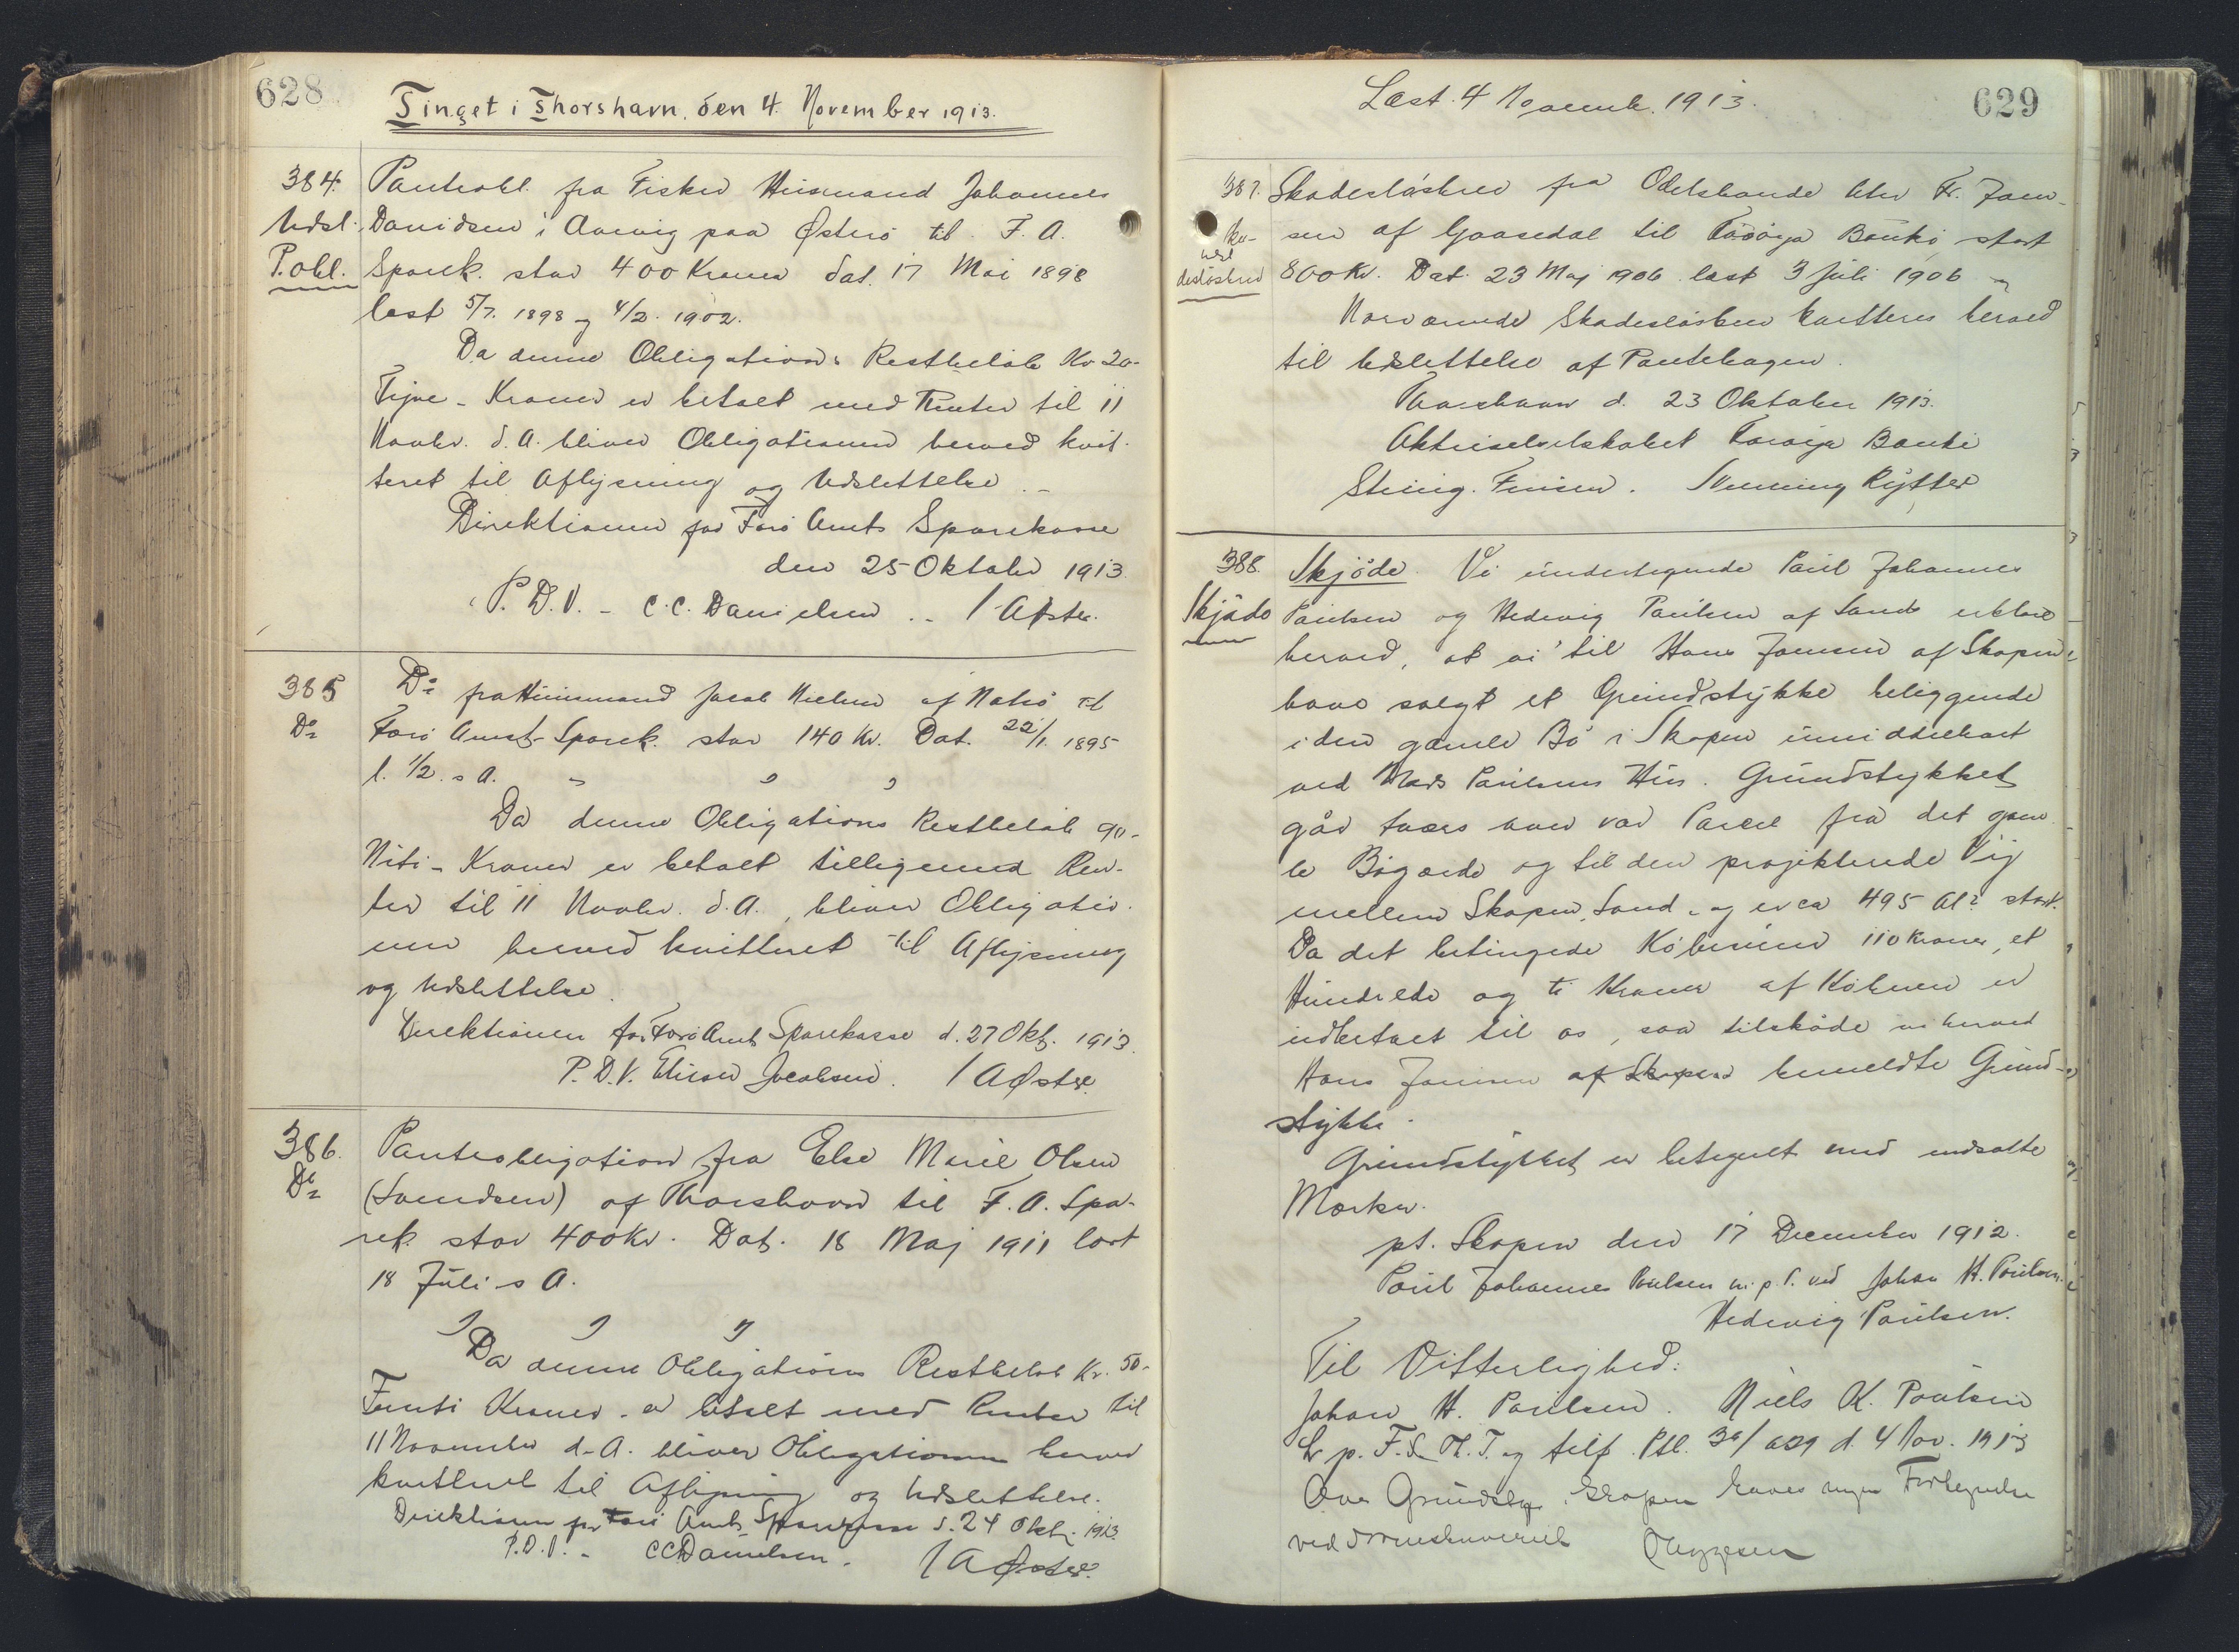 628
Tinget i Thorshavn, den 4. November 1913.
384.
Udsl.
P.obl.
Panteobl. fra Fisker Huusmand Johannes
Davidsen i Arnvig paa Østerö til F. A.
Sparek. stor 400 Kroner dat. 17 Mai 1898
læst 5/7. 1898 og 4/2. 1902.
Da denne Obligations Restbeløb Kr 20-
Tyve - Kroner er betalt med Renter til 11
Novbr. d. A. bliver Obligationen herved kvit-
teret til Aflysning og Udslettelse.
Direktionen for Færö Amts Sparekasse
den 25 Oktober 1913.
P. D. V. - C. C. Danielsen .. / A Øster.
385
Do
Do fra Huusmand Jacob Nielsen af Nolsö til
Færö Amts Sparek. stor 140 Kr. Dat. 22/1. 1895
l. 1/2. s A. " " "
Da denne Obligations Restbeløb 90-
Niti - Kroner er betalt tilligemed Ren-
ter til 11 Novbr. d. A., bliver Obligatio-
nen herved kvitteret til Aflysning
og Udslettelse.
Direktionen for Færö Amts Sparekasse d. 27 Okt. 1913.
P. D. V. Jacobsen. / A Øster.
386.
Do
Panteobligation fra Else Marie Olsen
(Svendsen) af Thorshavn til F. A. Spa-
rek. stor 400 Kr. Dat. 18 Maj 1911 læst
18 Juli s A.
" " "
Da denne Obligations Restbeløb Kr. 50-
Femti Kroner - er betalt med Renter til
11 November d. A. bliver Obligationen herved
kvitteret til Aflysning og Udslettelse.
Direktionen for Færö Amts Sparekasse d. 24 Oktbr. 1913.
P. D. V. - CC Danielsen. / A Øster.
Læst 4 November 1913.
629
387.
Skadesløsbrev fra Odelsbonde Fr. Joen-
sen af Gaasedal til Føroya Banki, stort
800 Kr. Dat. 23 Maj 1906 læst 3 Juli 1906
Nærværende Skadesløsbrev kvitteres herved
til Udslettelse af Pantebogen.
Thorshavn d. 23 Oktober 1913.
Aktieselvskabet Føroya Banki
Finsen.
388.
Skjøde
Skjøde. Vi undertegnede Poul Johannes
Poulsen og Hedevig Poulsen af Sand erklære
herved, at vi til Hans Joensen af Skopen
have solgt et Grundstykke beliggende
i den gamle Bö i Skopen umiddelbart
ved Mads Poulsens Hus. Grundstykket
går tværs over vor Parcel fra det gam-
le Bøgærde og til den projekterede Vej
mellem Skopen, Sand - og er ca 495 Al² stort.
Da det betingede Købesum 110 Kroner, et
Hundrede og ti Kroner af Køberen er
indbetalt til os, saa tilskøde vi herved
Hans Joensen af Skopen bemeldte Grund-
stykke.
Grundstykket er betegnet med nedsatte
Mærker.
pt. Skopen den 17 December 1912.
Poul Johannes Poulsen m. p. P. ved Johan H. Poulsen.
Hedevig Poulsen.
Til Vitterlighed:
Johan H. Poulsen. Niels K. Poulsen
d. 4 Nov. 1913
Skopen haves ingen